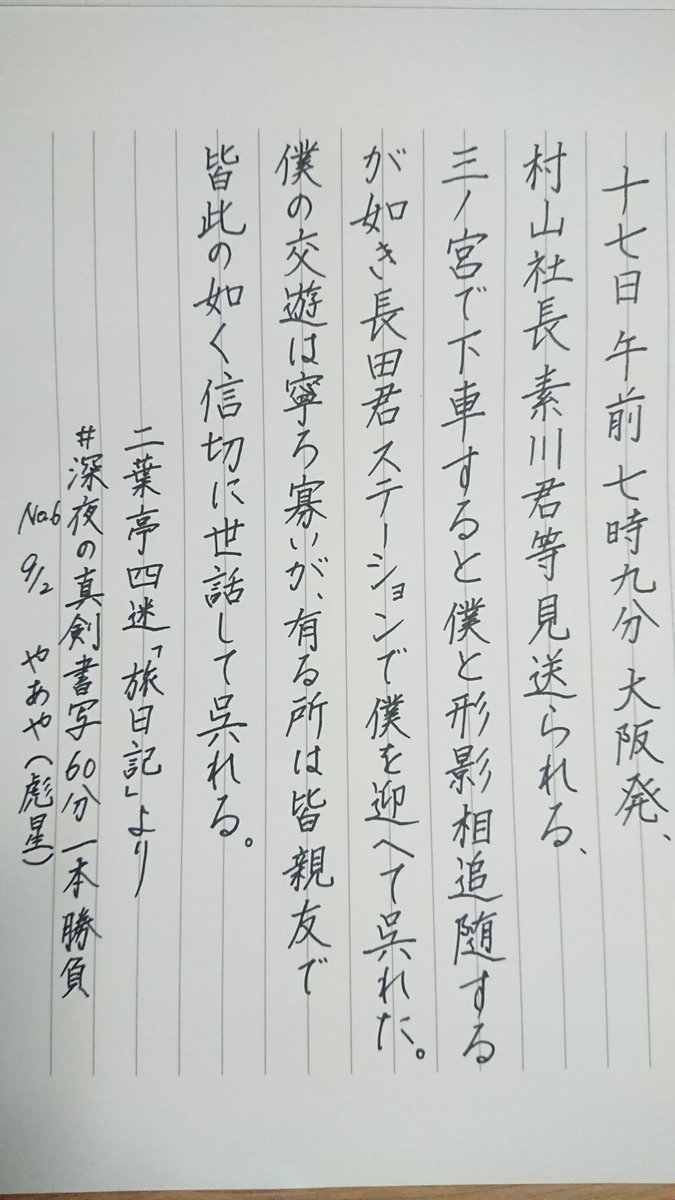 十七日午前七時九分大阪発、
村山社長素川君等見送られる、
三ノ宮で下車すると僕と形影相追随する
が如き長田君ステーションで僕を迎へて呉れた。
僕の交遊は寧ろ寡いが、有る所は皆親友で
皆此の如く信切に世話して呉れる。
二葉亭四迷「旅日記」より
#深夜の真剣書写60分一本勝負
No.6 9/2 やあや(彪星)